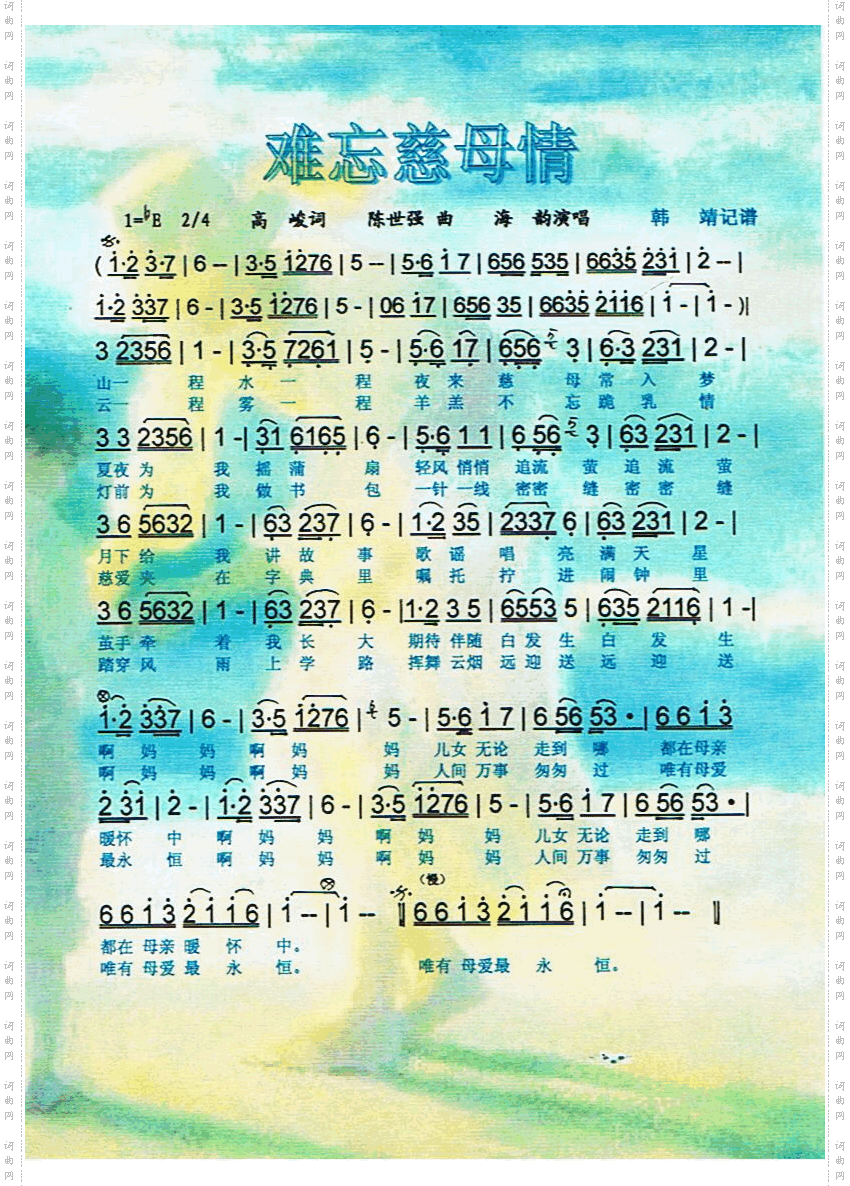 难忘慈母情
1=♭E 2/4 高 峻词 陈世强 曲 海 韵演唱 韩 靖记谱
( 1·2 3·7 | 6 -- | 3·5 1276 | 5 -- | 5·6 1 7 | 656 535 | 6635 231 | 2 -- |
1·2 337 | 6 - | 3·5 1276 | 5 - | 06 17 | 656 35 | 6635 2116 | 1 - | 1 - )|
3 2356 | 1 - | 3·5 7261 | 5 - | 5·6 17 | 656 3 | 6·3 231 | 2 - |
山一 程 水 一 程 夜 来 慈 母 常 入 梦
云一 程 雾 一 程 羊 羔 不 忘 跪 乳 情
3 3 2356 | 1 - | 31 6165 | 6 - | 5·6 1 1 | 6 56 3 | 63 231 | 2 - |
夏夜 为 我 摇 蒲 扇 轻风 悄悄 追流 萤 追 流 萤
灯前 为 我 做 书 包 一针 一线 密密 缝 密 密 缝
3 6 5632 | 1 - | 63 237 | 6 - | 1·2 35 | 2337 6 | 63 231 | 2 - |
月下 给 我 讲 故 事 歌 谣 唱 亮 满 天 星
慈爱 夹 在 字 典 里 嘱 托 拧 进 闹 钟 里
3 6 5632 | 1 - | 63 237 | 6 - | 1·2 3 5 | 6553 5 | 635 2116 | 1 - |
茧手 牵 着 我 长 大 期待 伴随 白 发 生 白 发 生
踏穿 风 雨 上 学 路 挥舞 云烟 远 迎 送 远 迎 送
1·2 337 | 6 - | 3·5 1276 | 5 - | 5·6 1 7 | 6 56 53 · | 6 6 1 3
啊 妈 妈 啊 妈 妈 儿女 无论 走到 哪 都在母亲
啊 妈 妈 啊 妈 妈 人间 万事 匆匆 过 唯有母爱
2 31 | 2 - | 1·2 337 | 6 - | 3·5 1276 | 5 - | 5·6 1 7 | 6 56 53 · |
暖怀 中 啊 妈 妈 啊 妈 妈 儿女 无论 走到 哪
最永 恒 啊 妈 妈 啊 妈 妈 人间 万事 匆匆 过
(慢)
6 6 1 3 2 1 1 6 | 1 -- | 1 -- ‖ 6 6 1 3 2 1 1 6 | 1 -- | 1 -- ‖
都在 母亲 暖 怀 中。
唯有 母爱 最 永 恒。 唯有 母爱最 永 恒。